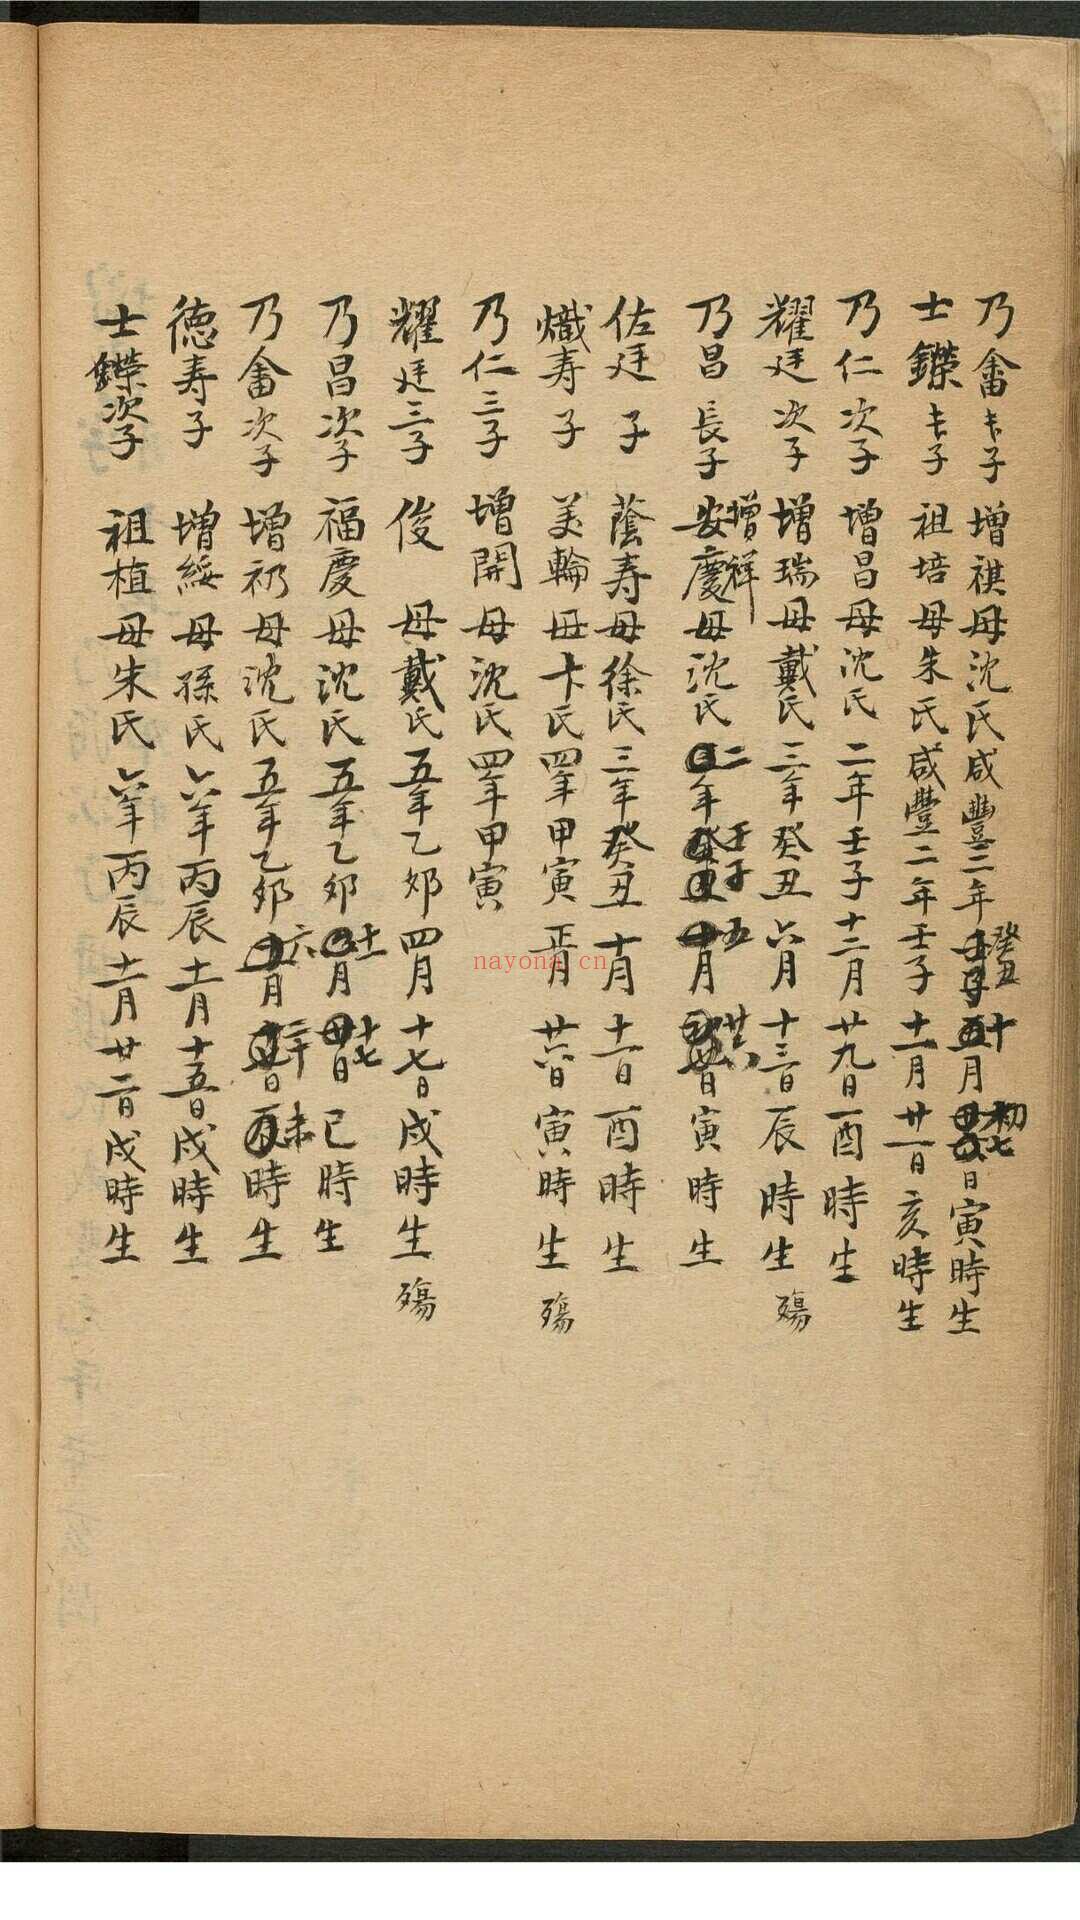 乃畬長子 增祺母沈氏咸豐二年癸丑十月初七日寅時生
士鑅長子 祖培母朱氏咸豐二年壬子十一月廿一日亥時生
乃仁次子 增昌母沈氏二年壬子十二月廿九日酉時生
耀廷次子 增瑞母戴氏三年癸丑六月十三日辰時生殤
乃昌長子 安慶增祥母沈氏二年壬子五月廿六日寅時生
佐廷子 蔭寿母徐氏三年癸丑十月十一日酉時生
熾寿子 美輪母卞氏四年甲寅正月廿六日寅時生殤
乃仁三子 增開母沈氏四年甲寅
耀廷三子 俊 母戴氏五年乙卯四月十七日戌時生殤
乃昌次子 福慶母沈氏五年乙卯十一月十七日巳時生
乃畬次子 增礽母沈氏五年乙卯六月三十日未時生
德寿子 增綏母孫氏六年丙辰十一月十五日戌時生
士鑅次子 祖植母朱氏六年丙辰十一月廿二日戌時生
nayona.cn